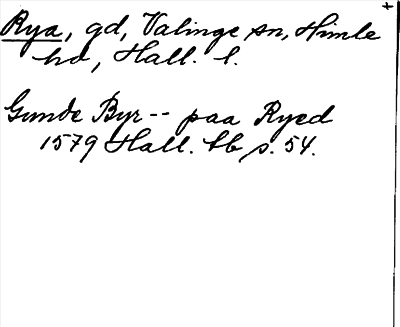 Rya, gd, Valinge sn, Himle
hd, Hall. l.
Gunde Byr-- paa Ryed
1579 Hall. tb s. 54.